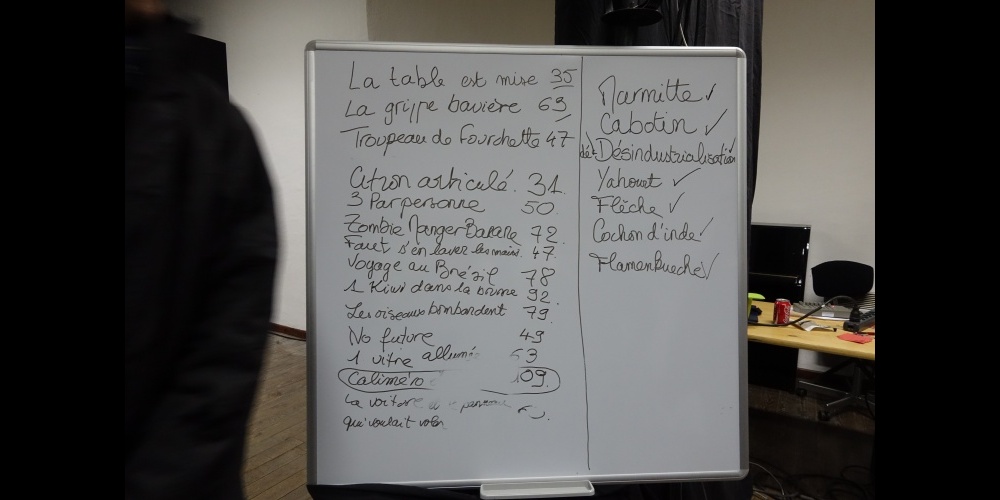 La table est mise 35
La grippe bavière 63
Troupeau de Fourchette 47
Citron articulé. 31.
3 Par personne 50.
Zombie Manger Banane 72.
Faut s'en laver les mains. 47.
Voyage au Brésil 78
1 Kiwi dans la brume 92.
Les oiseaux bombardent 79.
No future 49
1 vitre allumée 53
Caliméro 109.
La voiture
qui voulait voler
Marmitte ✓
Cabotin ✓
Désindustrialisation ✓
Yahourt ✓
Flêche ✓
Cochon d'inde ✓
Flamenkueche ✓